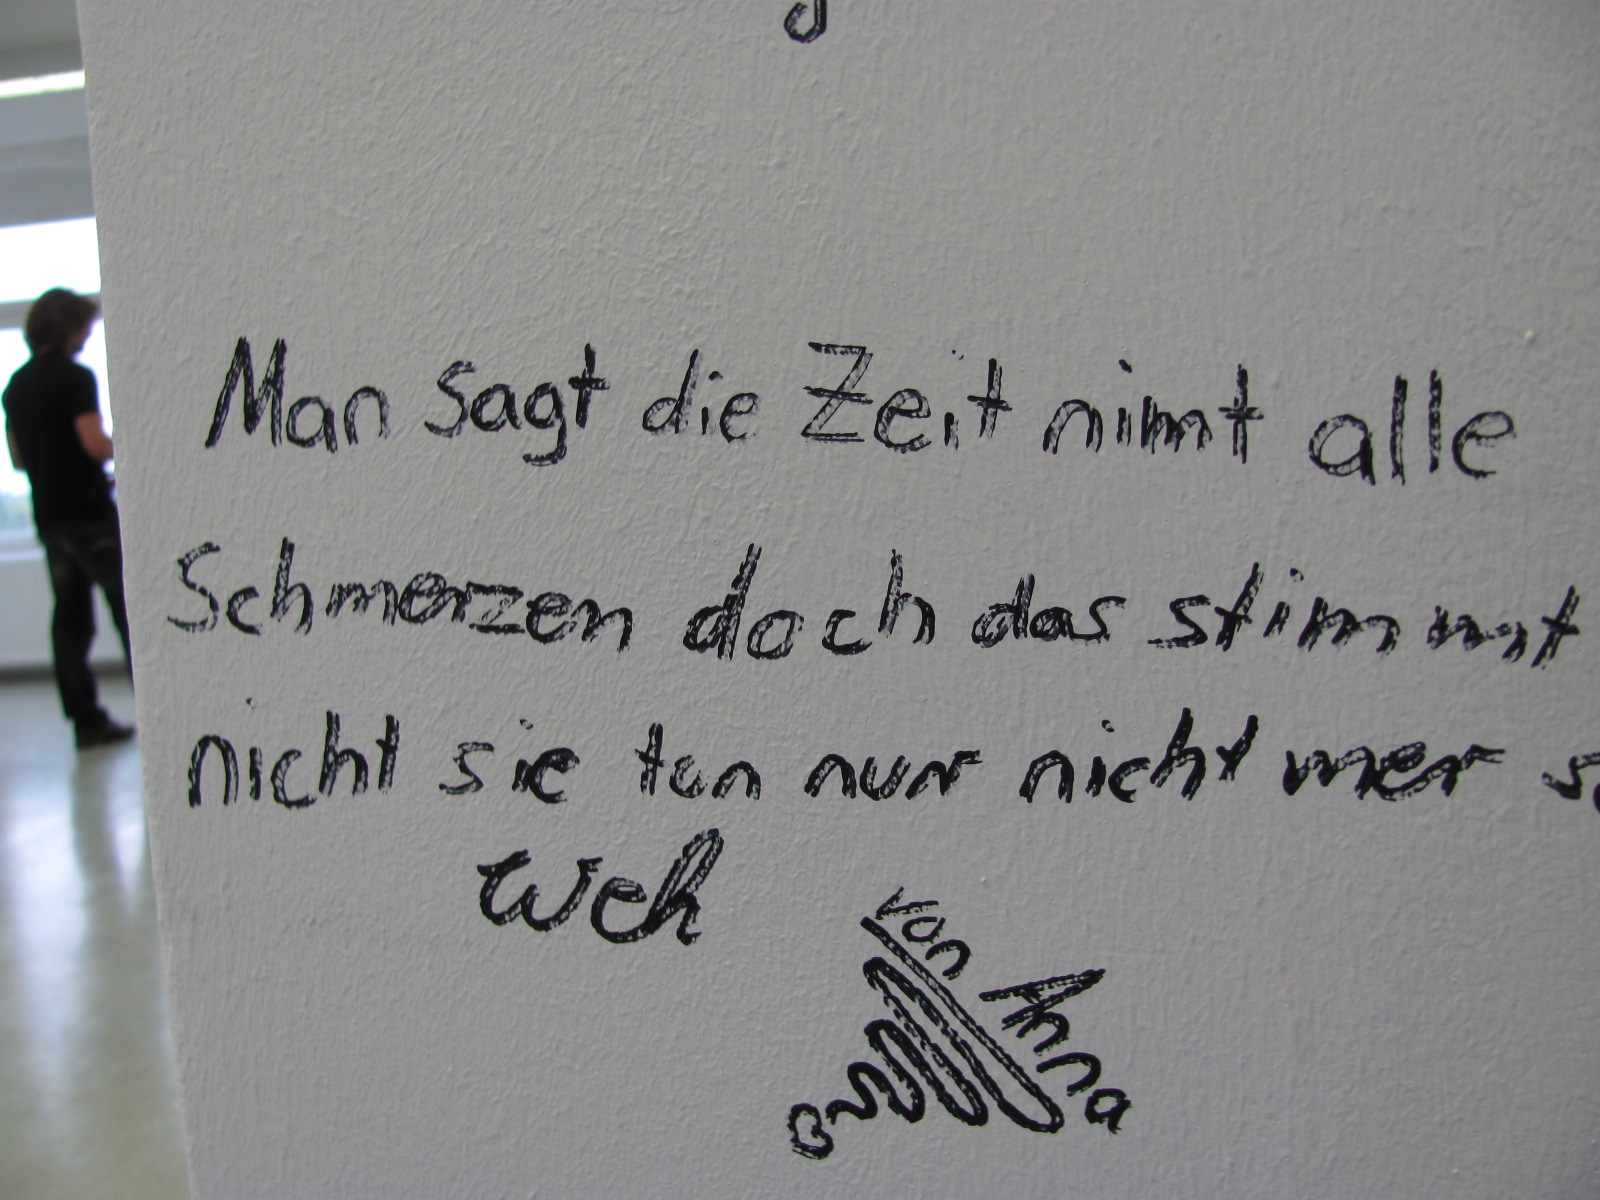 Man sagt die Zeit nimt alle
Schmerzen doch das stimmt
nicht sie tun nur nicht mer so
weh
von Anna